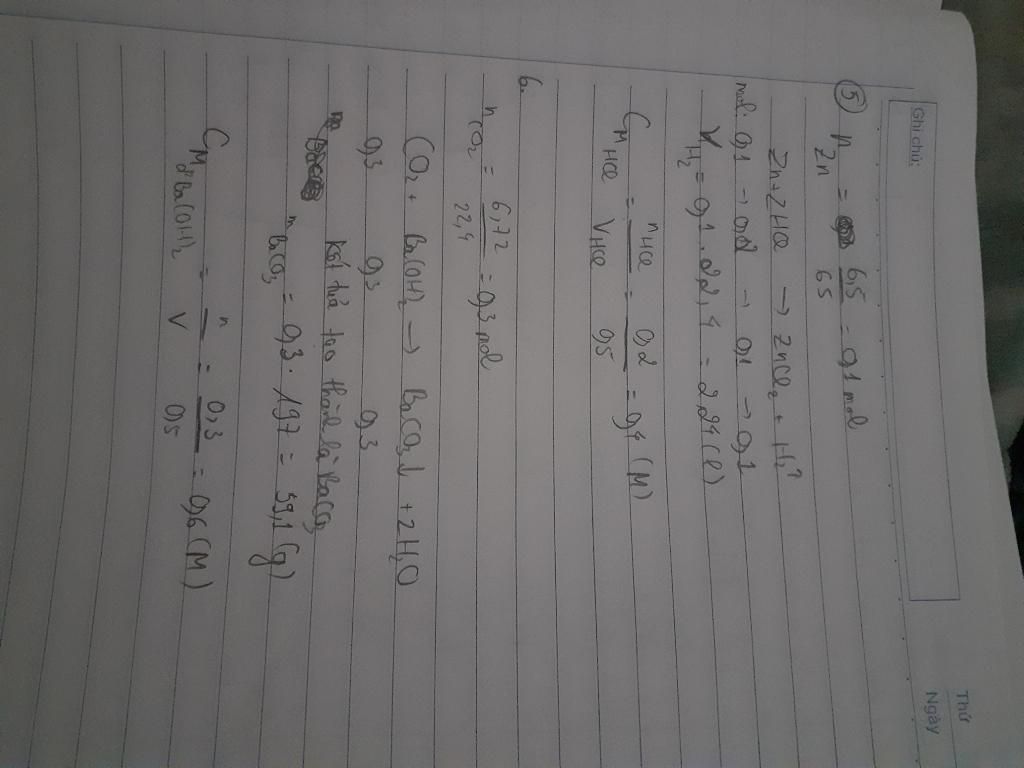 Thứ
Ngày
Ghi chú:
⑤ n Zn = 6,5/65 = 0,1 mol
Zn + 2HCl → ZnCl₂ + H₂↑
mol: 0,1 → 0,2 → 0,1 → 0,1
V H₂ = 0,1 . 22,4 = 2,24 (l)
C M HCl = n HCl / V HCl = 0,2/0,5 = 0,4 (M)
6.
n CO₂ = 6,72/22,4 = 0,3 mol
CO₂ + Ba(OH)₂ → BaCO₃↓ + 2H₂O
0,3 0,3 0,3
Kết tủa tạo thành là BaCO₃
m BaCO₃ = 0,3 . 197 = 59,1 (g)
C M dd Ba(OH)₂ = n/V = 0,3/0,5 = 0,6 (M)